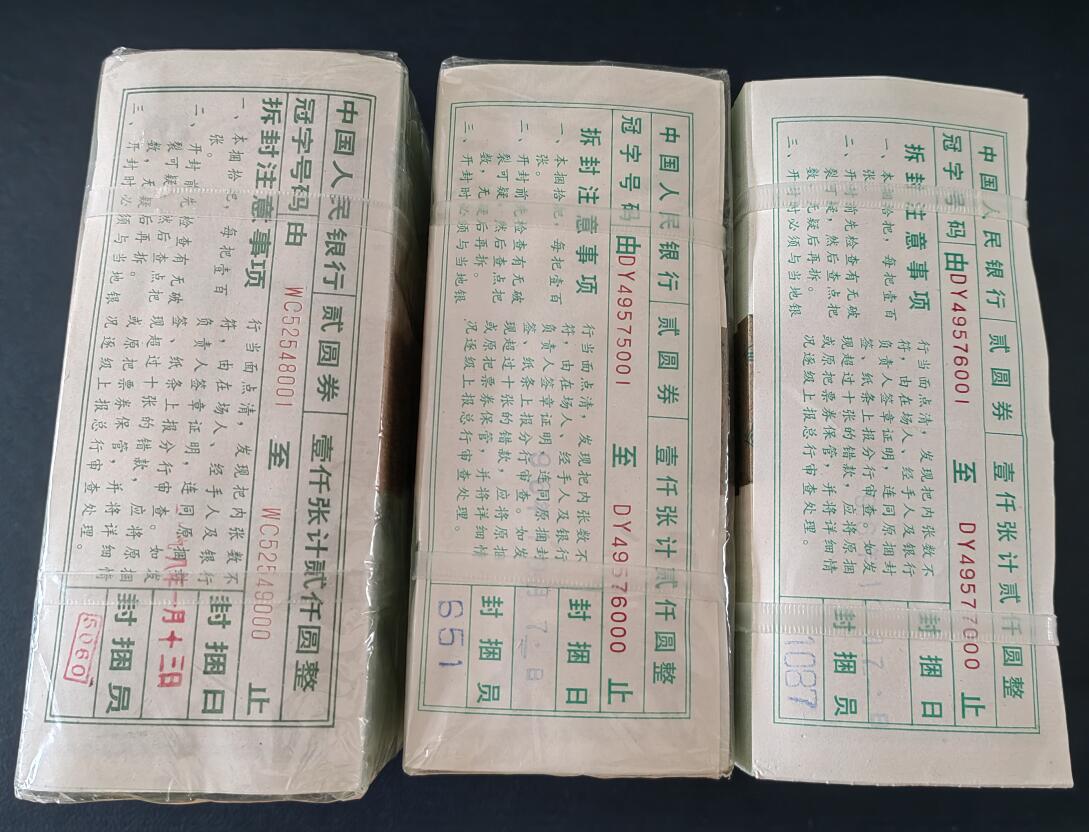 中国人民银行 贰圆券 壹仟张计贰仟圆整
冠字号码 由 WC52548001 至 WC52549000 止
拆封注意事项
一、本捆拾把，每把壹百
张。
二、开封前先检查有无破
裂可疑，然后查点把
数，无疑后再拆。
三、开封时必须与当地银
行当面点清，发现把内张数不
符，由在场人、经手人及银行
负责人签章证明，连同原捆封
签、纸条上报分行审查。如发
现超过十张的错款，应将原捆
或原把票券保管，并将详细情
况逐级上报总行审查处理。
封捆日
年一月十三日
封捆员
5060
中国人民银行 贰圆券 壹仟张计贰仟圆整
冠字号码 由 DY49575001 至 DY49576000 止
拆封注意事项
一、本捆拾把，每把壹百
张。
二、开封前先检查有无破
裂可疑，然后查点把
数，无疑后再拆。
三、开封时必须与当地银
行当面点清，发现把内张数不
符，由在场人、经手人及银行
负责人签章证明，连同原捆封
签、纸条上报分行审查。如发
现超过十张的错款，应将原捆
或原把票券保管，并将详细情
况逐级上报总行审查处理。
封捆日
封捆员
651
中国人民银行 贰圆券 壹仟张计贰仟圆整
冠字号码 由 DY49576001 至 DY49577000 止
拆封注意事项
一、本捆拾把，每把壹百
张。
二、开封前先检查有无破
裂可疑，然后查点把
数，无疑后再拆。
三、开封时必须与当地银
行当面点清，发现把内张数不
符，由在场人、经手人及银行
负责人签章证明，连同原捆封
签、纸条上报分行审查。如发
现超过十张的错款，应将原捆
或原把票券保管，并将详细情
况逐级上报总行审查处理。
封捆日
封捆员
1087